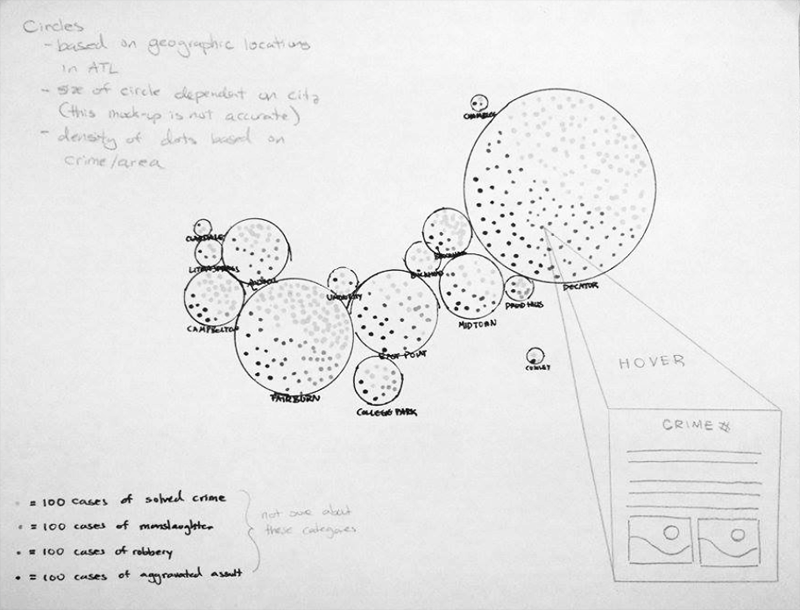 Circles
- based on geographic locations
in ATL
- size of circle dependent on city
(this mock-up is not accurate)
- density of dots based on
crime/area
CHAMBLEE
CLARDALE
LITHIA SPRINGS
CAMPBELTON
FAIRBURN
UNION CITY
EAST POINT
COLLEGE PARK
BUCKHEAD
MIDTOWN
DRUID HILLS
DECATOR
CONLEY
HOVER
CRIME #
= 100 cases of solved crime
= 100 cases of manslaughter
= 100 cases of robbery
= 100 cases of aggravated assult
not sure about
these categories